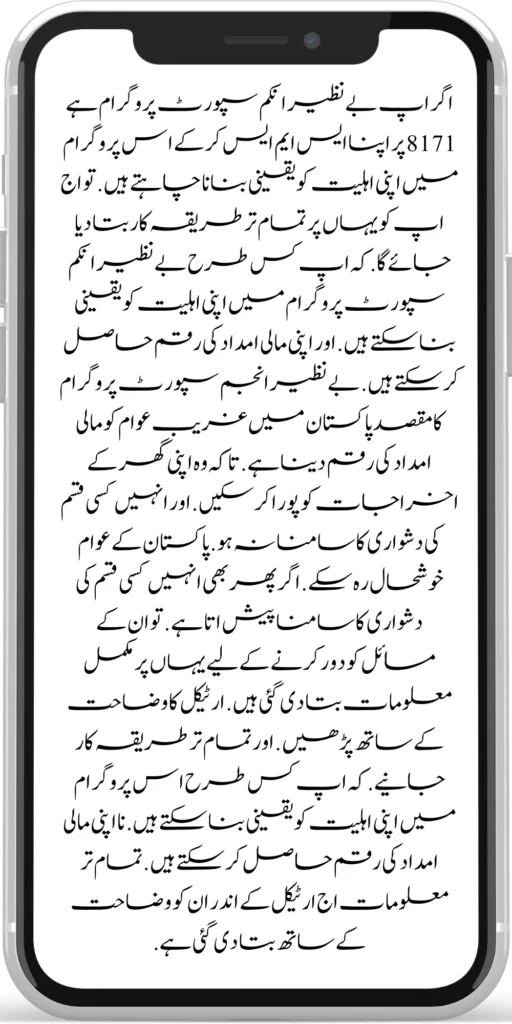 اگر اپ بے نظیر انکم سپورٹ پروگرام ہے
8171 پر اپنا ایس ایم ایس کر کے اس پروگرام
میں اپنی اہلیت کو یقینی بنانا چاہتے ہیں. تو اج
اپ کو یہاں پر تمام تر طریقہ کار بتا دیا
جائے گا. کہ اپ کس طرح بے نظیر انکم
سپورٹ پروگرام میں اپنی اہلیت کو یقینی
بنا سکتے ہیں. اور اپنی مالی امداد کی رقم حاصل
کر سکتے ہیں. بے نظیر انجم سپورٹ پروگرام
کا مقصد پاکستان میں غریب عوام کو مالی
امداد کی رقم دینا ہے. تاکہ وہ اپنی گھر کے
اخراجات کو پورا کر سکیں. اور انہیں کسی قسم
کی دشواری کا سامنا نہ ہو. پاکستان کے عوام
خوشحال رہ سکے. اگر پھر بھی انہیں کسی قسم کی
دشواری کا سامنا پیش اتا ہے. تو ان کے
مسائل کو دور کرنے کے لیے یہاں پر مکمل
معلومات بتا دی گئی ہیں. ارٹیکل کا وضاحت
کے ساتھ پڑھیں. اور تمام تر طریقہ کار
جانیے. کہ اپ کس طرح اس پروگرام
میں اپنی اہلیت کو یقینی بنا سکتے ہیں. نا اپنی مالی
امداد کی رقم حاصل کر سکتے ہیں. تمام تر
معلومات اج ارٹیکل کے اندر ان کو وضاحت
کے ساتھ بتا دی گئی ہے.